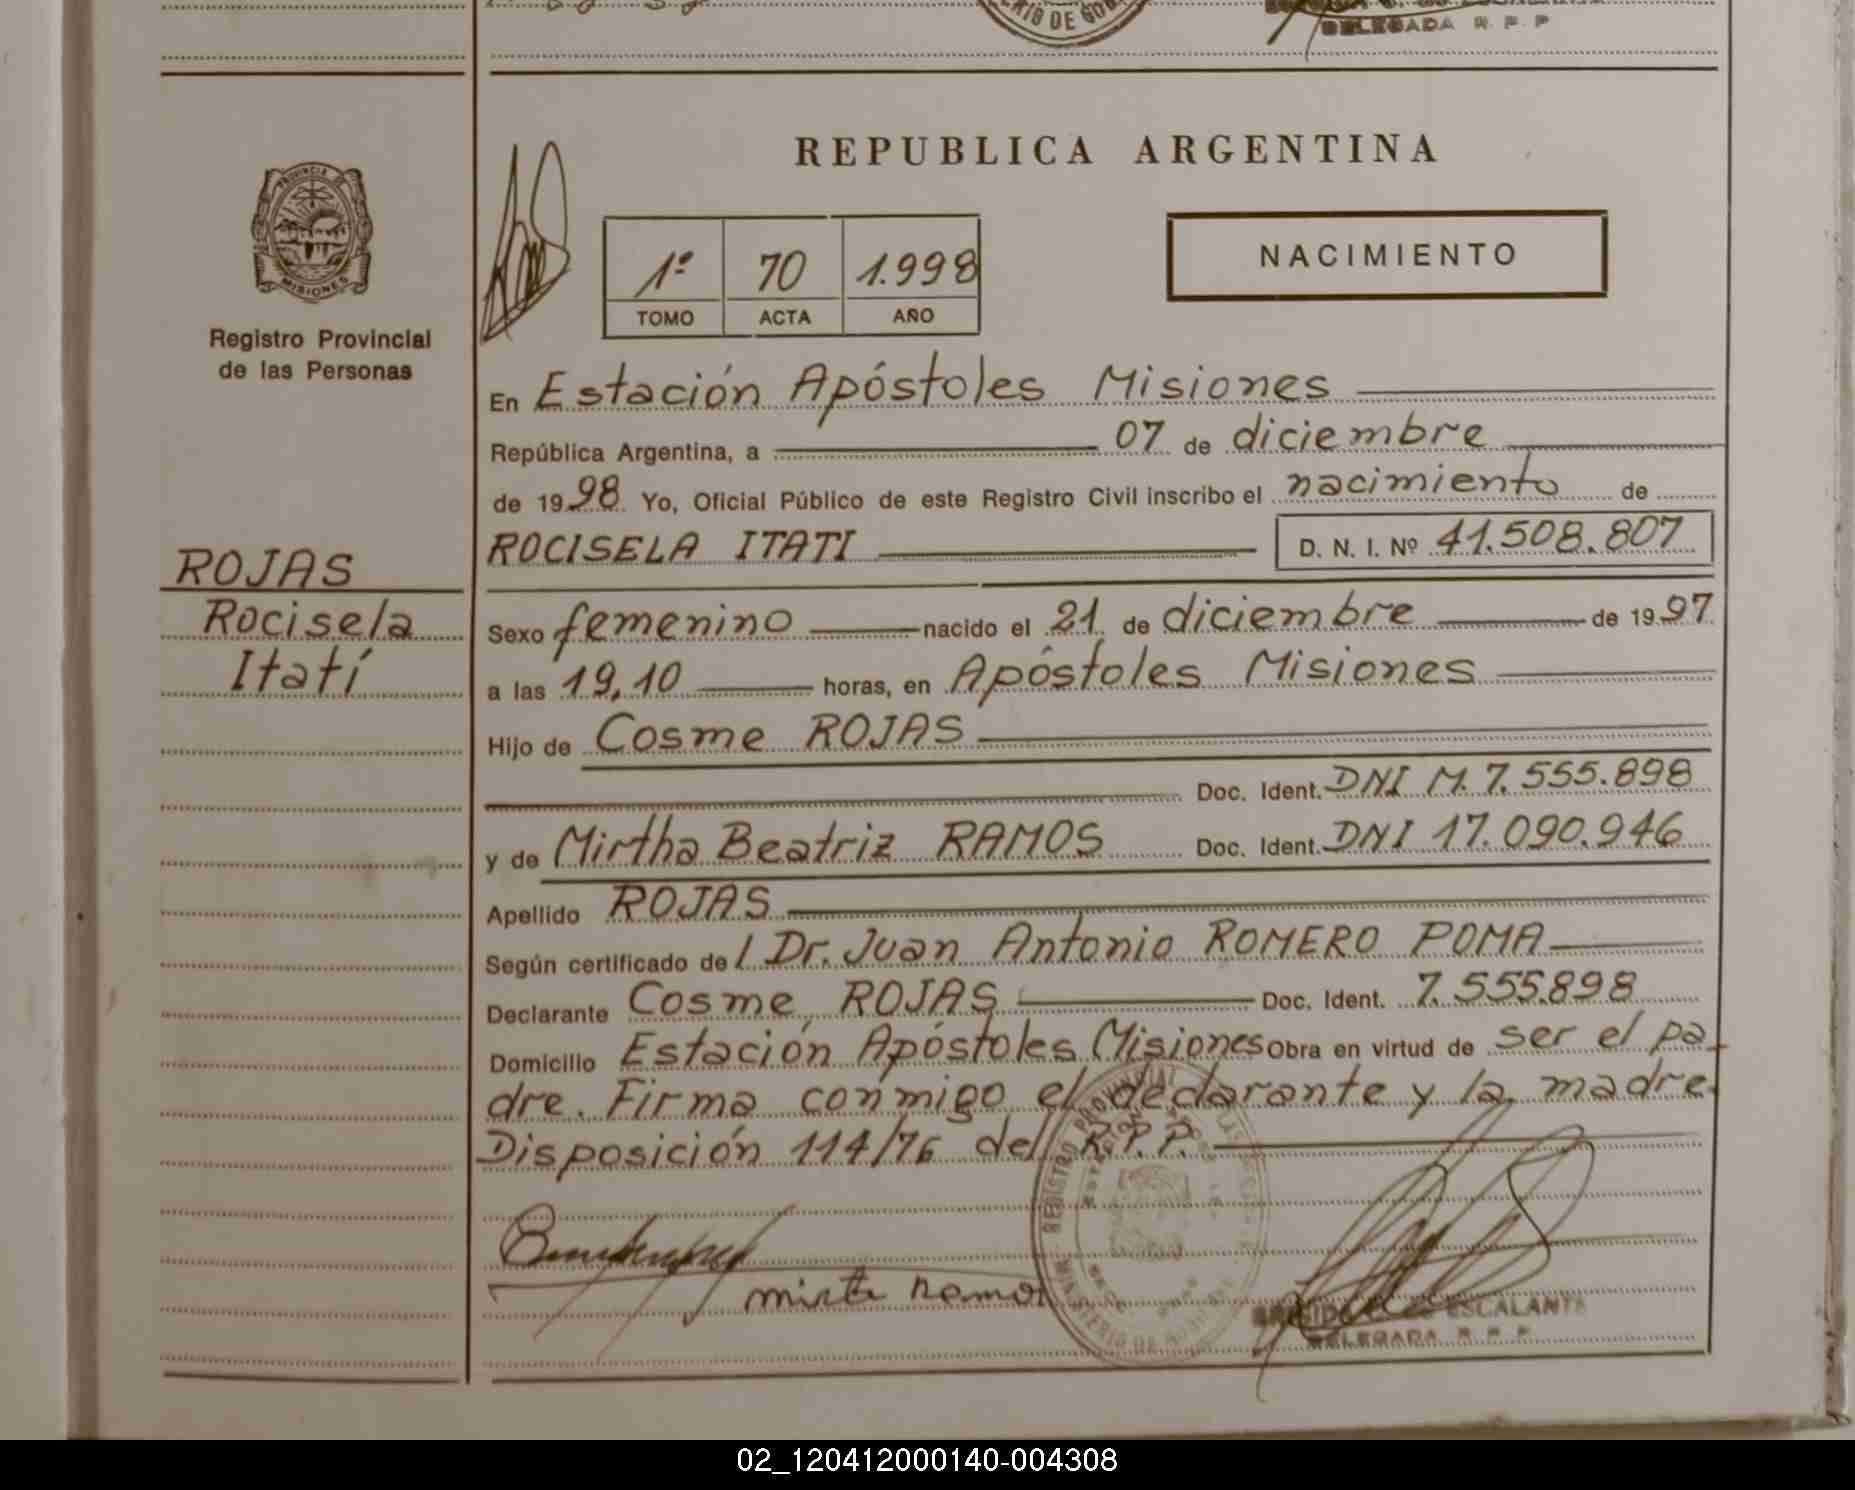 DELEGADA R. P. P
REPUBLICA ARGENTINA
PROVINCIA DE
MISIONES
Registro Provincial
de las Personas
1º 70 1.998
TOMO ACTA AÑO
NACIMIENTO
En Estación Apóstoles Misiones
República Argentina, a 07 de diciembre
de 1998 Yo, Oficial Público de este Registro Civil inscribo el nacimiento de
ROCISELA ITATI D. N. I. Nº 41.508.807
ROJAS
Rocisela
Itatí
Sexo femenino nacido el 21 de diciembre de 1997
a las 19,10 horas, en Apóstoles Misiones
Hijo de Cosme ROJAS
Doc. Ident. DNI M. 7.555.898
y de Mirtha Beatriz RAMOS Doc. Ident. DNI 17.090.946
Apellido ROJAS
Según certificado de l Dr. Juan Antonio ROMERO POMA
Declarante Cosme ROJAS Doc. Ident. 7.555.898
Domicilio Estación Apóstoles Misiones Obra en virtud de ser el pa-
dre. Firma conmigo el declarante y la madre.
Disposición 114/76 del R.P.P.
mirta Ramos
REGISTRO PROVINCIAL DE LAS
MINISTERIO DE
ESCALANTE
DELEGADA R. P. P.
02_120412000140-004308